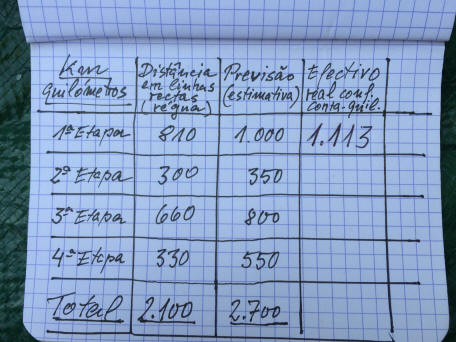 Km
quilómetros
Distância
em linhas
rectas
(régua)
Previsão
(estimativa)
Efectivo
real conf.
conta-quil.
1ª Etapa 810 1.000 1.113
2ª Etapa 300 350
3ª Etapa 660 800
4ª Etapa 330 550
Total 2.100 2.700